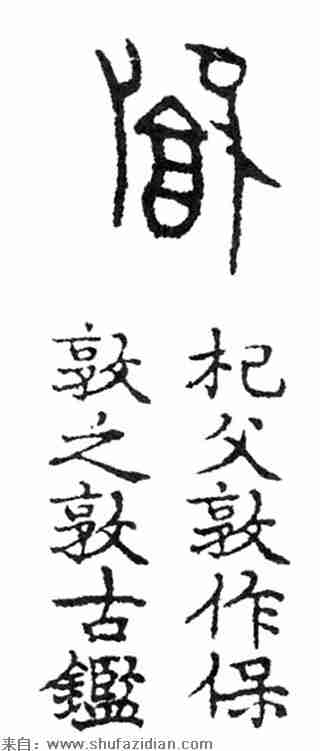 杞父敦作保
敦之敦古鑑
来自：www.shufazidian.com